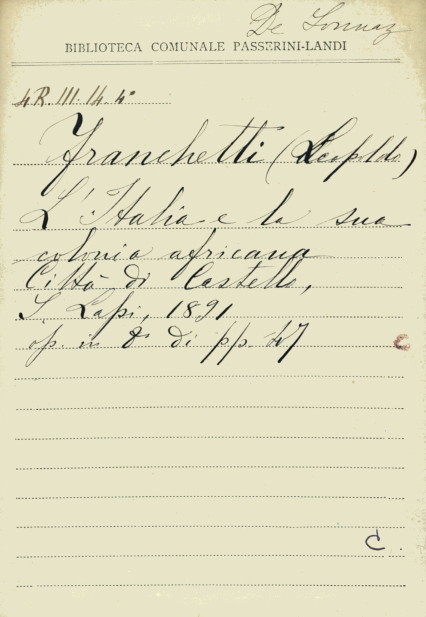 De Sonnaz
BIBLIOTECA COMUNALE PASSERINI-LANDI
4R.III.14.4°
Franchetti (Leopoldo)
L'Italia e la sua
colonia africana
Città di Castello,
S. Lapi, 1891
op. in 8° di pp. 47
C.